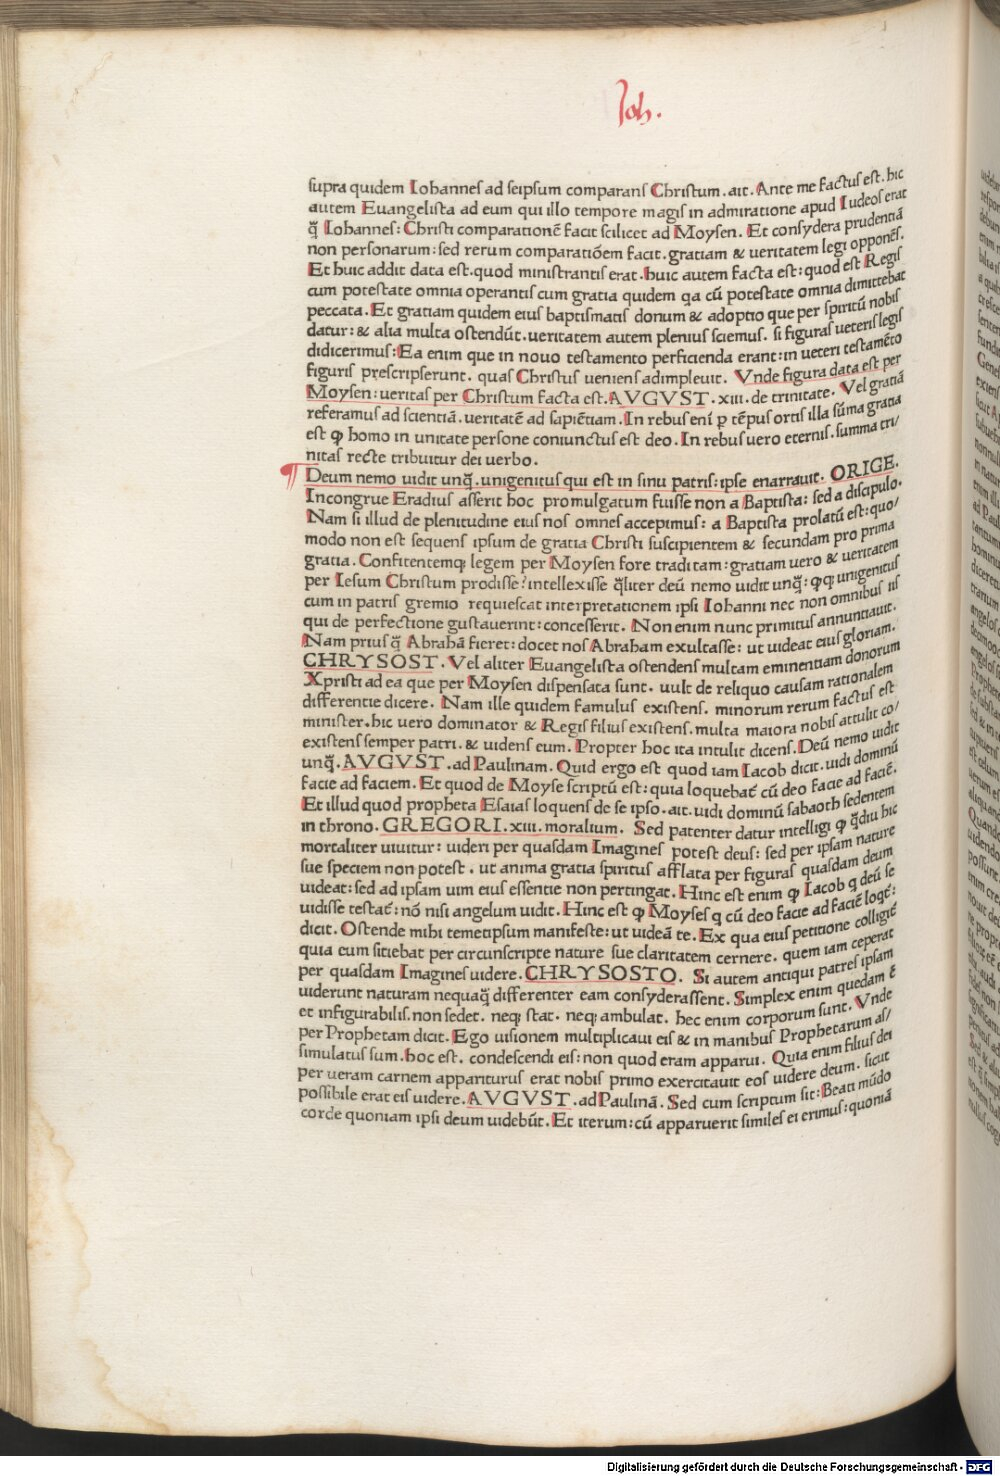 Joh.
supra quidem Iohannes ad seipsum comparans Christum. ait. Ante me factus est. hic
autem Euangelista ad eum qui illo tempore magis in admiratione apud Iudeos erat
q̃ Iohannes: Christi comparationē facit scilicet ad Moysen. Et consydera prudentiā
non personarum: sed rerum comparatiōem facit. gratiam & ueritatem legi opponēs.
Et huic addit data est. quod ministrantis erat. huic autem facta est: quod est Regis
cum potestate omnia operantis cum gratia quidem qa cū potestate omnia dimittebat
peccata. Et gratiam quidem eius baptismatis donum & adoptio que per spiritū nobis
datur: & alia multa ostendūt. ueritatem autem plenius sciemus. si figuras ueteris legis
didicerimus: Ea enim que in nouo testamento perficienda erant: in ueteri testamēto
figuris prescripserunt. quas Christus ueniens adimpleuit. Vnde figura data est per
Moysen: ueritas per Christum facta est. AVGVST. xiii. de trinitate. Vel gratiā
referamus ad scientiā. ueritatē ad sapiētiam. In rebus eni ꝑ tēpus ortis illa sūma gratia
est ꝙ homo in unitate persone coniunctus est deo. In rebus uero eternis. summa tri/
nitas recte tribuitur dei uerbo.
¶ Deum nemo uidit unq̃. unigenitus qui est in sinu patris: ipse enarrauit. ORIGE.
Incongrue Eradius asserit hoc promulgatum fuisse non a Baptista: sed a discipulo.
Nam si illud de plenitudine eius nos omnes accepimus: a Baptista prolatū est: quo/
modo non est sequens ipsum de gratia Christi suscipientem & secundam pro prima
gratia. Confitentemq; legem per Moysen fore traditam: gratiam uero & ueritatem
per Iesum Christum prodisse? intellexisse q̃liter deū nemo uidit unq̃: ꝙq; unigenitus
cum in patris gremio requiescat interpretationem ipsi Iohanni nec non omnibus iis
qui de perfectione gustauerint: concesserit. Non enim nunc primitus annunciauit.
Nam prius q̃ Abrahā fieret: docet nos Abraham exultasse: ut uideat eius gloriam.
CHRYSOST. Vel aliter Euangelista ostendens multam eminentiam donorum
Xpristi ad ea que per Moysen dispensata sunt. uult de reliquo causam rationalem
differentie dicere. Nam ille quidem famulus existens. minorum rerum factus est
minister. hic uero dominator & Regis filius existens. multa maiora nobis attulit co/
existens semper patri. & uidens eum. Propter hoc ita intulit dicens. Deū nemo uidit
unq̃. AVGVST. ad Paulinam. Quid ergo est quod iam Iacob dicit. uidi dominū
facie ad faciem. Et quod de Moyse scriptū est: quia loquebat cū deo facie ad faciē.
Et illud quod propheta Esaias loquens de se ipso. ait. uidi dominū sabaoth sedentem
in throno. GREGORI. xiii. moralium. Sed patenter datur intelligi ꝙ q̃diu hic
mortaliter uiuitur: uideri per quasdam Imagines potest deus: sed per ipsam nature
sue speciem non potest. ut anima gratia spiritus afflata per figuras quasdam deum
uideat: sed ad ipsam uim eius essentie non pertingat. Hinc est enim ꝙ Iacob q deū se
uidisse testat: nō nisi angelum uidit. Hinc est ꝙ Moyses q cū deo facie ad faciē loqt:
dicit. Ostende mihi temetipsum manifeste: ut uideā te. Ex qua eius petitione colligit
quia eum sitiebat per circunscripte nature sue claritatem cernere. quem iam ceperat
per quasdam Imagines uidere. CHRYSOSTO. Si autem antiqui patres ipsam
uiderunt naturam nequaq̃ differenter eam consyderassent. Simplex enim quedam ē
et infigurabilis. non sedet. neq; stat. neq; ambulat. hec enim corporum sunt. Vnde
per Prophetam dicit. Ego uisionem multiplicaui eis & in manibus Prophetarum as/
simulatus sum. hoc est. condescendi eis: non quod eram apparui. Quia enim filius dei
per ueram carnem appariturus erat nobis primo exercitauit eos uidere deum. sicut
possibile erat eis uidere. AVGVST. ad Paulinā. Sed cum scriptum sit: Beati mūdo
corde quoniam ipsi deum uidebūt. Et iterum: cū apparuerit similes ei erimus: quoniā
Digitalisierung gefördert durch die Deutsche Forschungsgemeinschaft - DFG